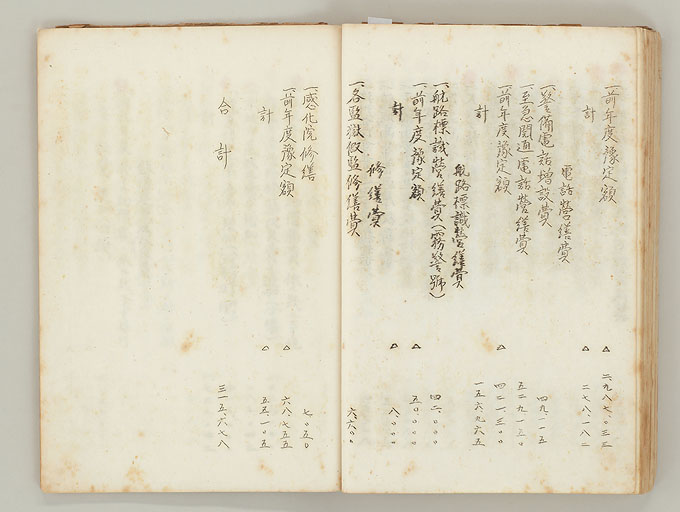 一、前年度豫定額 △ 二、九八七、〇三三
計 △ 二七八、一八二
電話營繕費
一、警備電話増設費 四九、一一五
一、至急開通電話營繕費 五二九、一五〇
一、前年度豫定額 △ 四二一、三〇〇
計 一五六、九六五
航路標識營繕費
一、航路標識營繕費(霧警號) 四二、〇〇〇
一、前年度豫定額 △ 五〇、〇〇〇
計 △ 八、〇〇〇
修繕費
一、各監獄仮監修繕費 六、六〇〇
一、感化院修繕 七、〇五〇
一、前年度豫定額 △ 六八、七五五
計 △ 五五、一〇五
合計 三一五、六七八